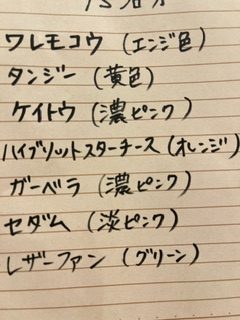 ワレモコウ (エンジ色)
タンジー (黄色)
ケイトウ (濃ピンク)
ハイブリットスターチース (オレンジ)
ガーベラ (濃ピンク)
セダム (淡ピンク)
レザーファン (グリーン)